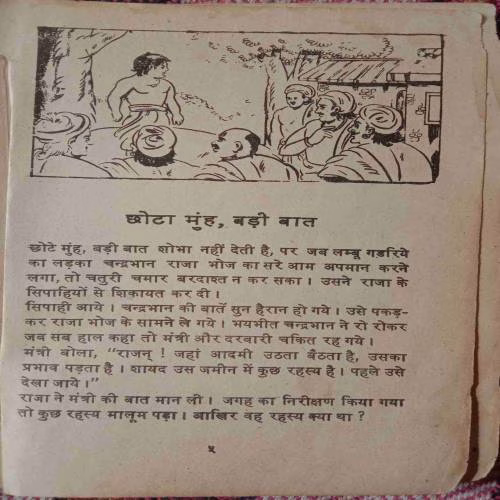 छोटा मुंह, बड़ी बात
छोटे मुंह, बड़ी बात शोभा नहीं देती है, पर जब लम्बू गड़रिये
का लड़का चन्द्रभान राजा भोज का सरे आम अपमान करने
लगा, तो चतुरी चमार बरदाश्त न कर सका। उसने राजा के
सिपाहियों से शिकायत कर दी।
सिपाही आये। चन्द्रभान की बातें सुन हैरान हो गये। उसे पकड़-
कर राजा भोज के सामने ले गये। भयभीत चन्द्रभान ने रो रोकर
जब सब हाल कहा तो मंत्री और दरबारी चकित रह गये।
मंत्री बोला, “राजन् ! जहां आदमी उठता बैठता है, उसका
प्रभाव पड़ता है। शायद उस जमीन में कुछ रहस्य है। पहले उसे
देखा जाये।”
राजा ने मंत्री की बात मान ली। जगह का निरीक्षण किया गया
तो कुछ रहस्य मालूम पड़ा। आखिर वह रहस्य क्या था ?
५